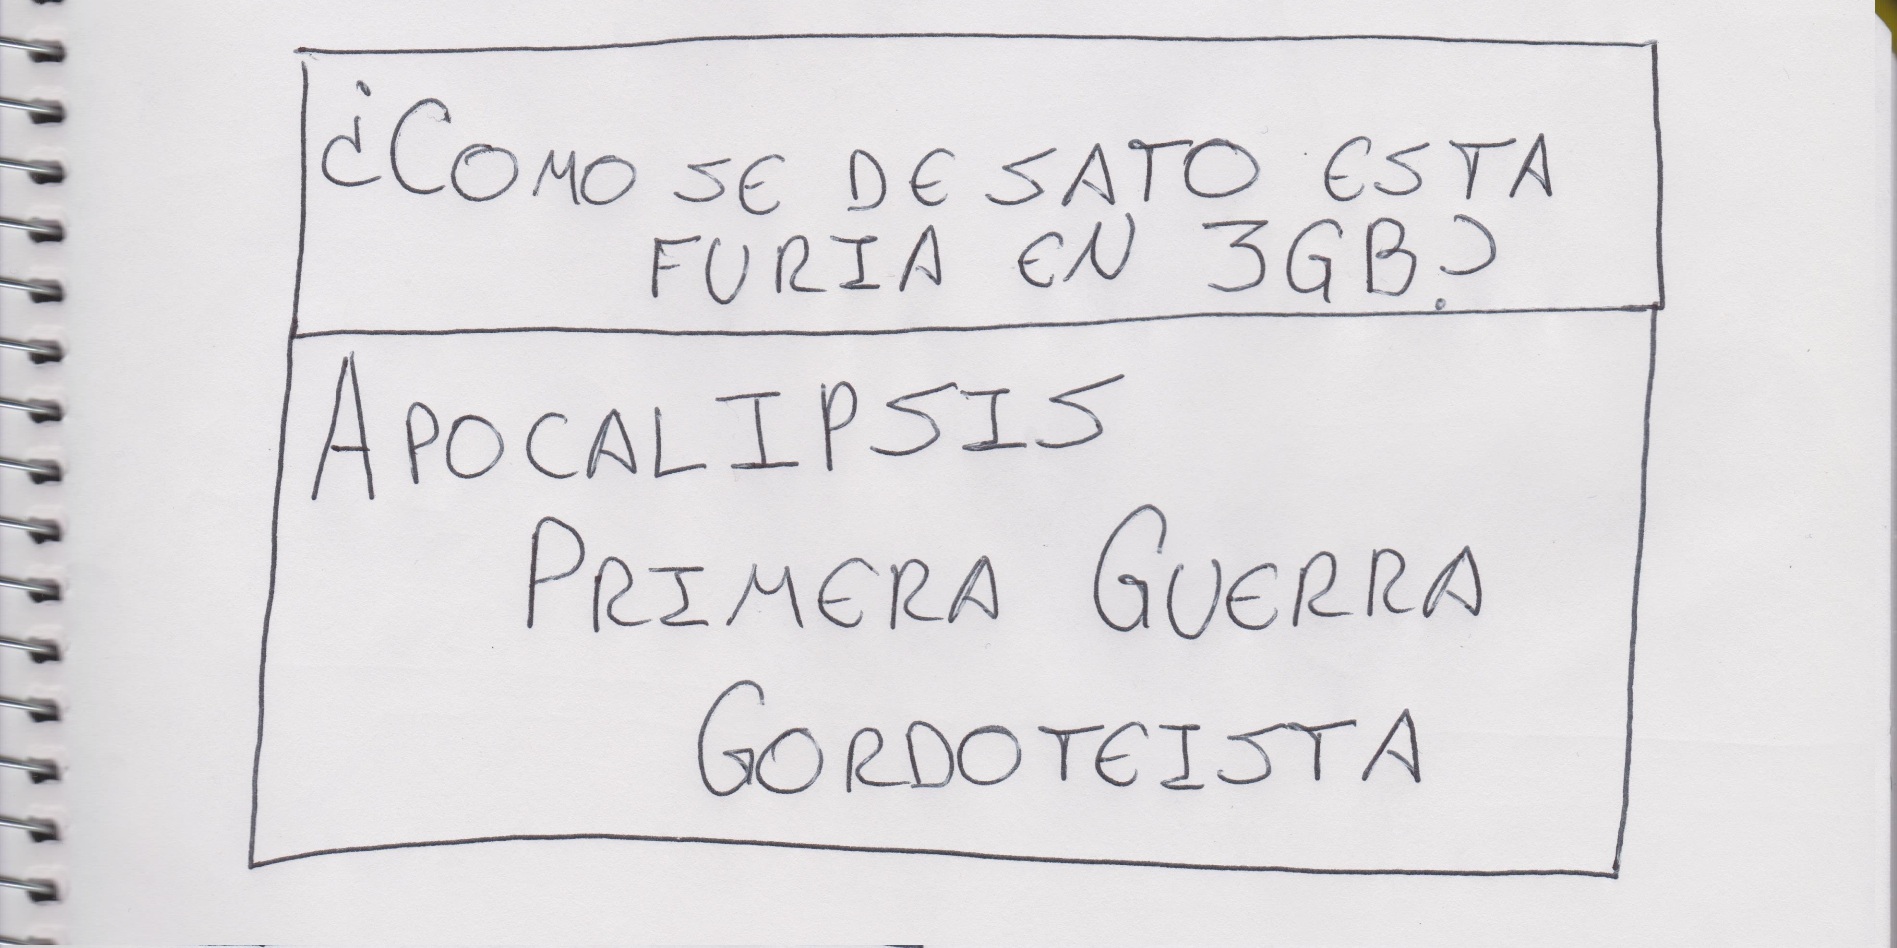 ¿COMO SE DESATO ESTA
FURIA EN 3GB?
APOCALIPSIS
PRIMERA GUERRA
GORDOTEISTA